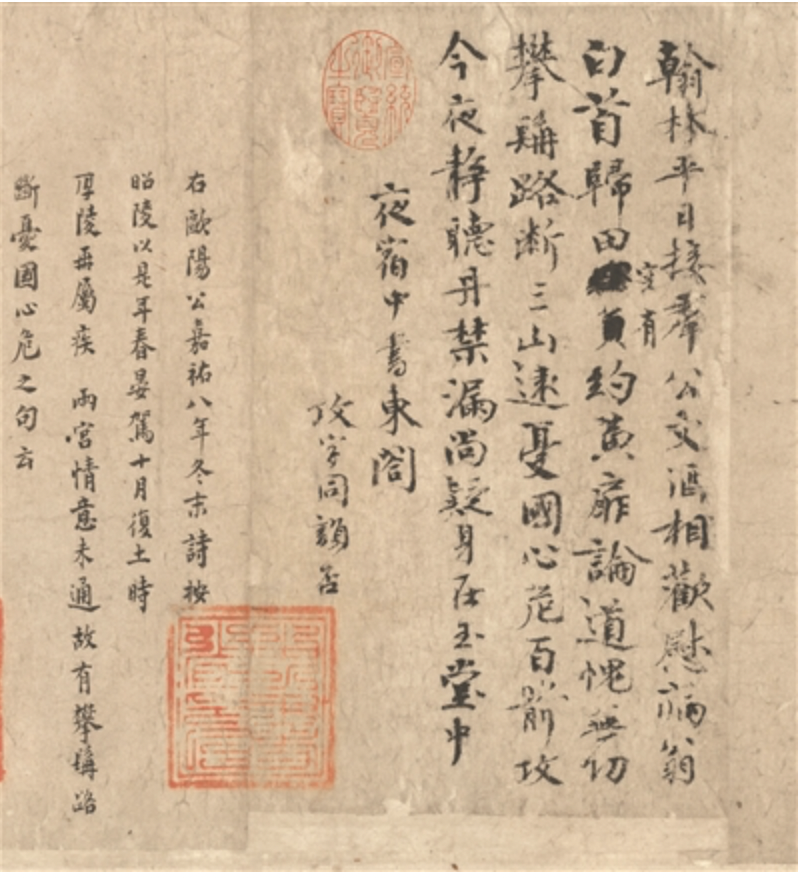 翰林平日接羣公文酒相歡慰病翁
白首歸田空有負約黃扉論道愧無功
攀髯路斷三山遠憂國心危百箭攻
今夜靜聽丹禁漏尚疑身在玉堂中
夜宿中書東閤
攷字同韻否
右歐陽公嘉祐八年冬末詩按
昭陵以是年春晏駕十月復土時
厚陵再屬疾 兩宮情意未通故有攀髯路
斷憂國心危之句云
宣統御覽之寶